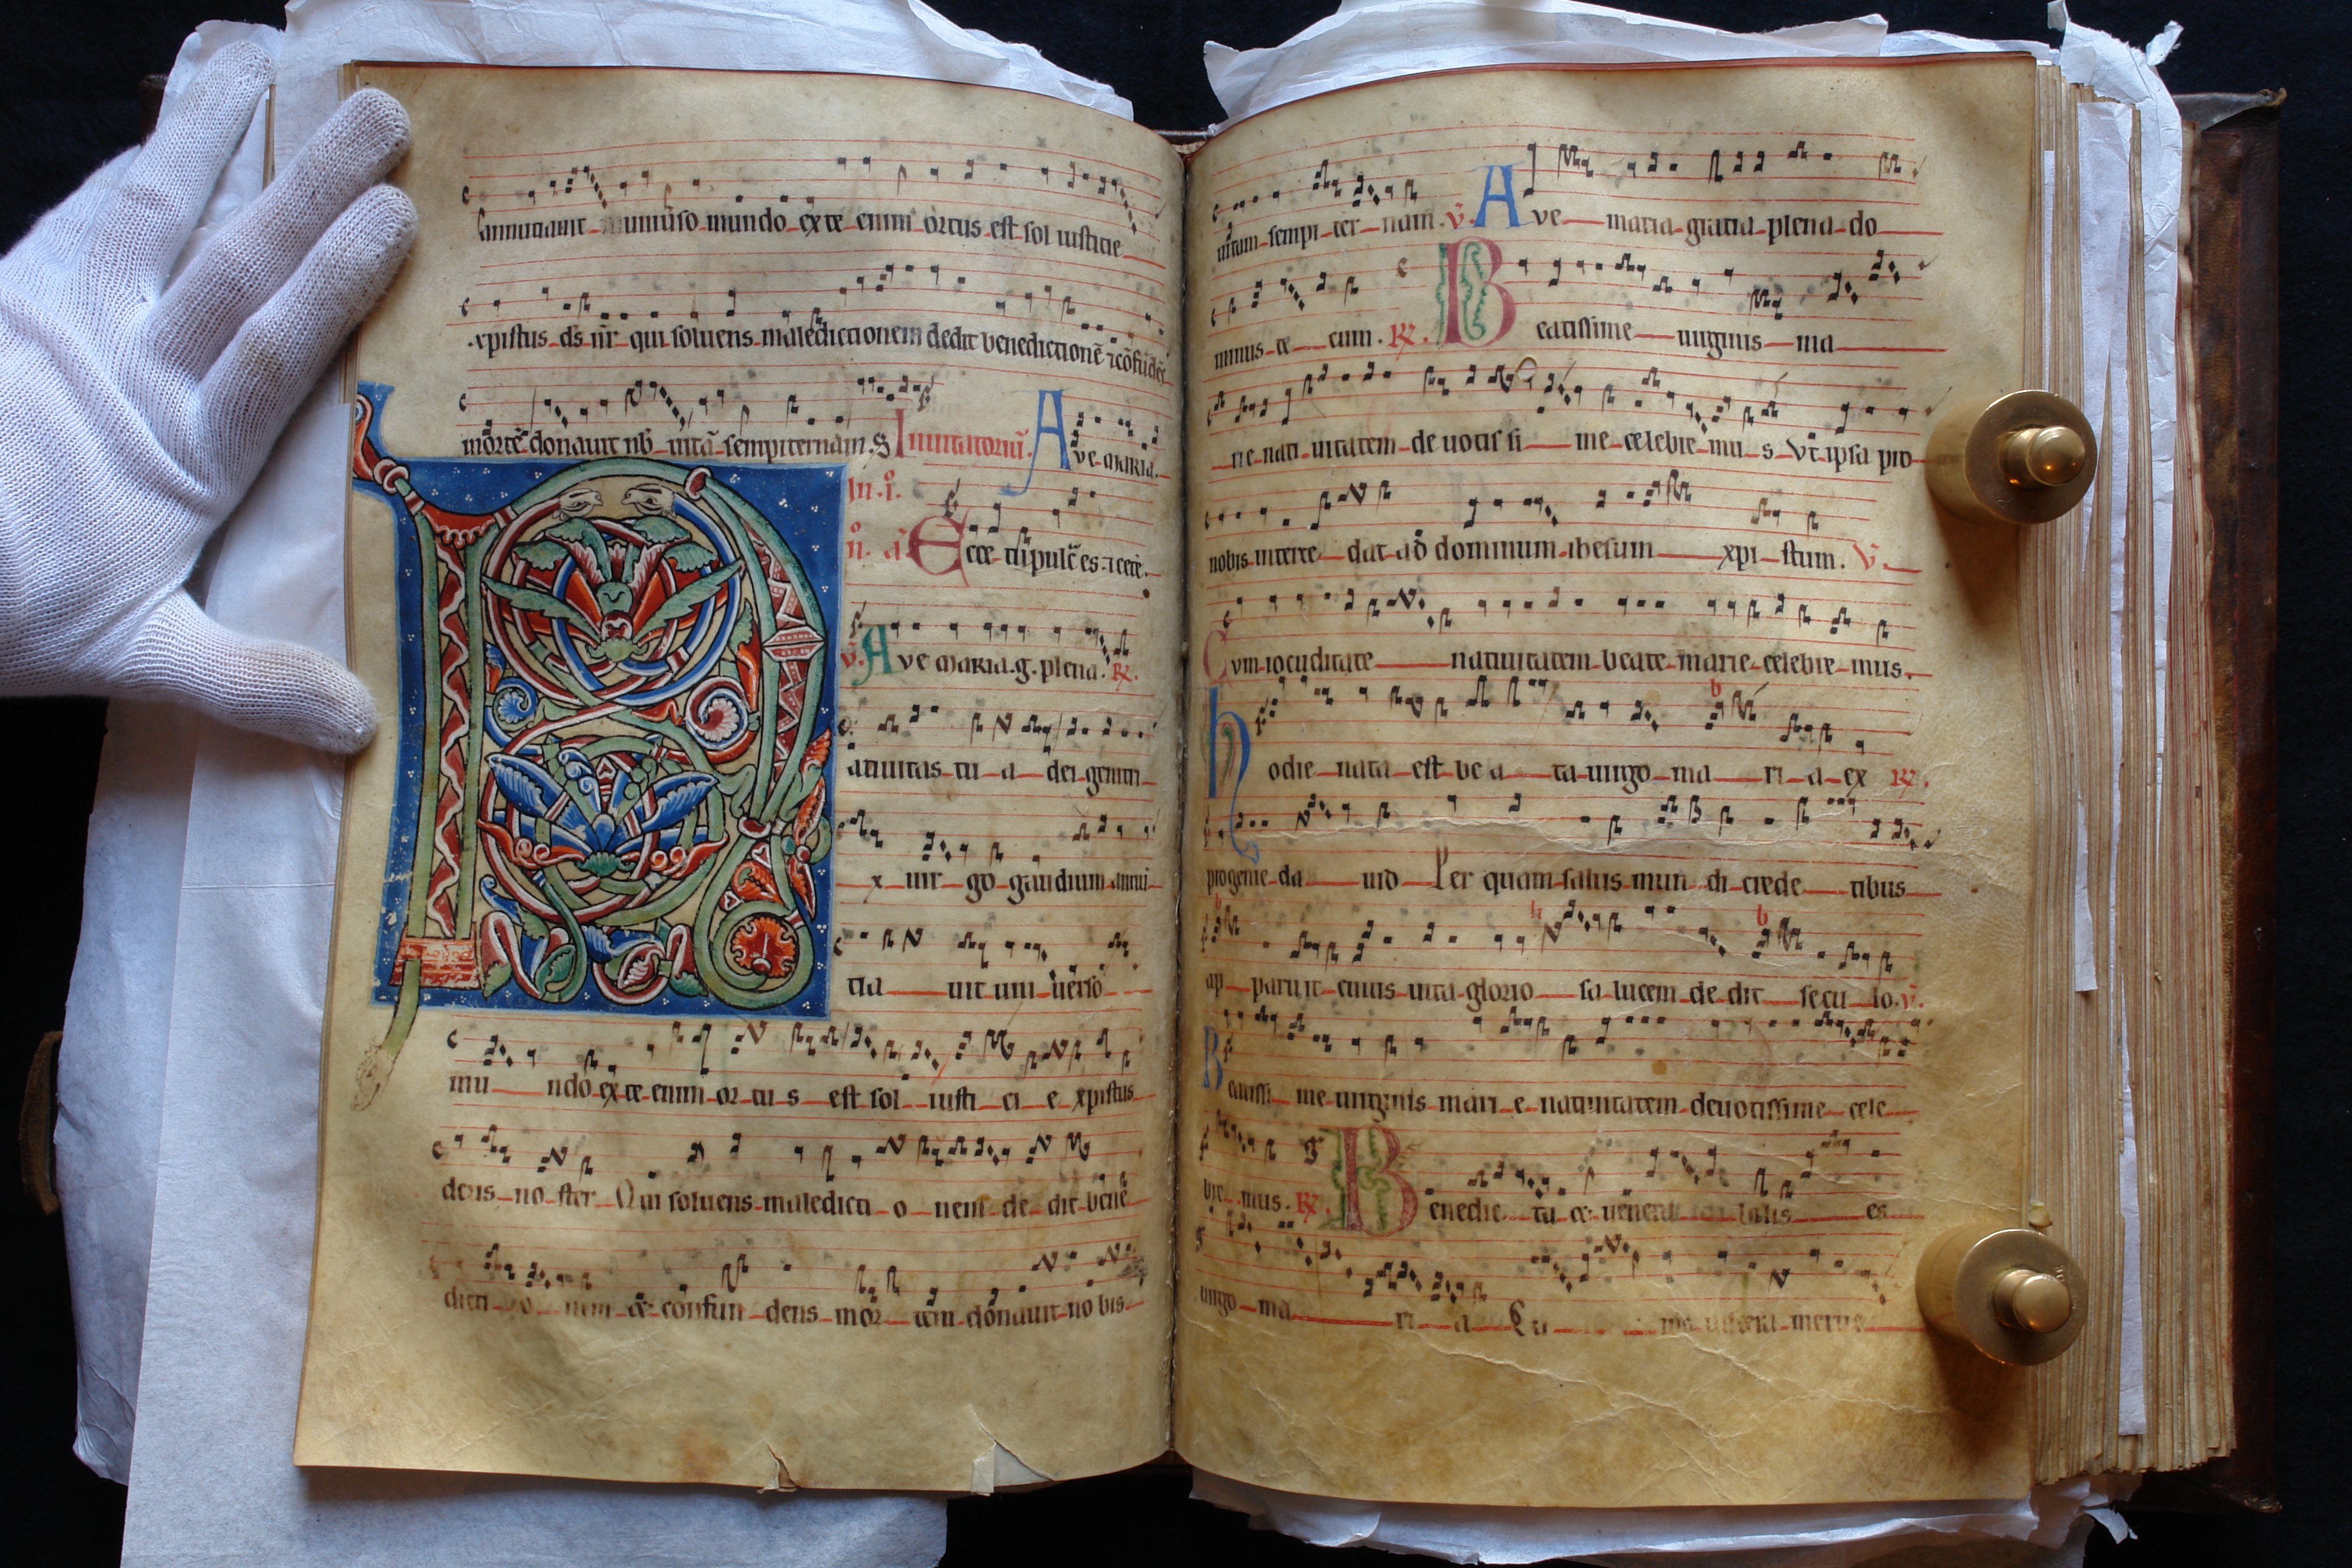 annuntiauit uniuerso mundo ex te enim ortus est sol iusticie
xpistus ds nr qui soluens maledictionem dedit benedictionē ⁊ cōfūdēs
mortē donauit nb uitā sempiternam. Inuitatoriū. Ave maria.
In. i.
n. a Ecce tu pulc es ⁊ cete.
v. Ave maria. g. plena. R.
Natiuitas tu a dei geniti
x uir go gaudium annu
tia uit uni uerso
mu ndo ex te enim or tu s est sol iusti ci e xpistus
deus no ster Qui soluens maledicti o nem de dit bene
dicti o nem et confun dens mor tem donauit no bis
uitam sempi ter nam. v. Ave maria gratia plena do
minus te cum. R. Beatissime uirginis ma
rie nati uitatem de uotis si me celebre mu s Vt ipsa pro
nobis interce dat ad dominum ihesum xpi stum. V.
Cvm iocuditate natiuitatem beate marie celebre mus.
hodie nata est be a ta uirgo ma ri a ex R.
progenie da uid Per quam salus mun di crede tibus
ap paruit cuius uita glorio sa lucem de dit secu lo. v.
Beatissi me uirginis mari e natiuitatem deuotissime cele
bre mus. R. Benedic ta et uenera bilis es
uirgo ma ri a